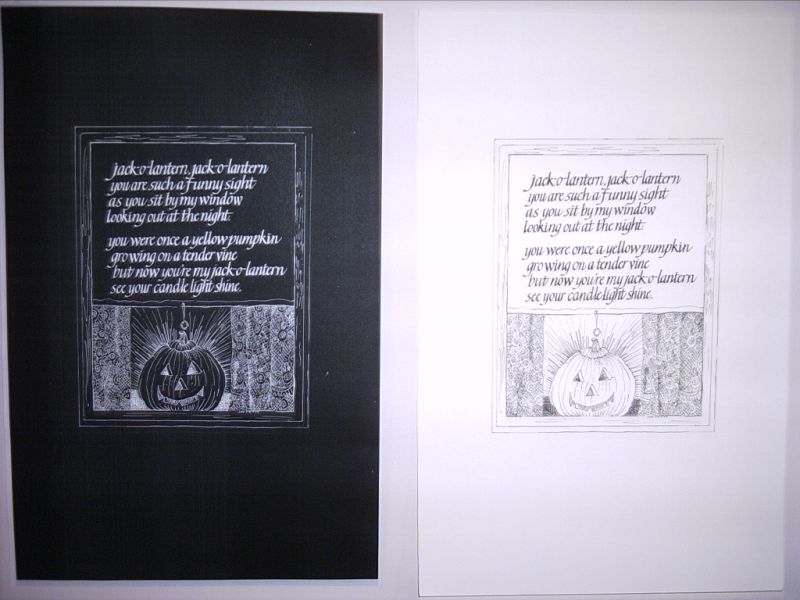 jack-o-lantern, jack-o-lantern
you are such a funny sight
as you sit by my window
looking out at the night.
you were once a yellow pumpkin
growing on a tender vine
but now you're my jack-o-lantern
see your candle light shine.
jack-o-lantern, jack-o-lantern
you are such a funny sight
as you sit by my window
looking out at the night.
you were once a yellow pumpkin
growing on a tender vine
but now you're my jack-o-lantern
see your candle light shine.